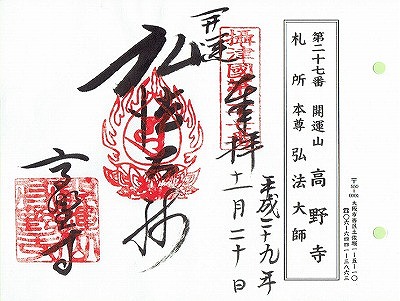 第二十七番 開運山 高野寺
札所本尊 弘法大師
大阪市西区土佐堀一-五-一〇
平成二十九年
十一月二十日
奉拝
攝津國
開運
弘法大師
高野寺